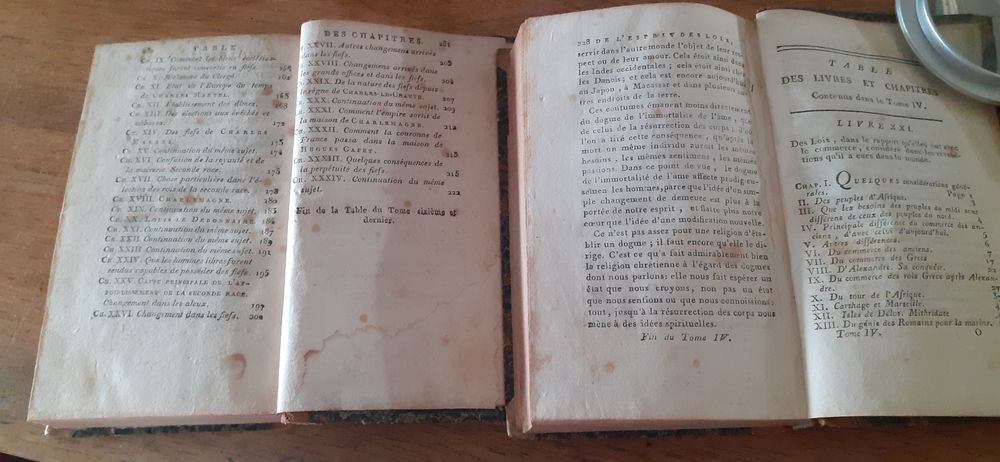 TABLE
Ch. XI. Etat de l'Europe du temps
de CHARLES MARTEL. 165
Ch. XII. Etablissement des dîmes. 168
Ch. XIII. Des élections aux évêchés et
abbayes. 172
Ch. XIV. Des fiefs de CHARLES
MARTEL. 173
Ch. XV. Continuation du même sujet. 174
Ch. XVI. Confusion de la royauté et de
la mairerie. Seconde race. 175
Ch. XVII. Chose particulière dans l'é-
lection des rois de la seconde race. 178
Ch. XVIII. CHARLEMAGNE. 180
Ch. XIX. Continuation du même sujet. 183
Ch. XX. LOUIS LE DÉBONNAIRE. 184
Ch. XXI. Continuation du même sujet. 187
Ch. XXII. Continuation du même sujet. 189
Ch. XXIII. Continuation du même sujet. 191
Ch. XXIV. Que les hommes libres furent
rendus capables de posséder des fiefs. 195
Ch. XXV. CAUSE PRINCIPALE DE L'AF-
FOIBLISSEMENT DE LA SECONDE RACE.
Changement dans les aleux. 197
Ch. XXVI. Changement dans les fiefs. 202
DES CHAPITRES.
XXVII. Autres changemens arrivés
dans les fiefs. 205
XXVIII. Changemens arrivés dans
les grands offices et dans les fiefs. 206
XXIX. De la nature des fiefs depuis
le règne de CHARLES-LE-CHAUVE. 207
Ch. XXX. Continuation du même sujet. 209
Ch. XXXI. Comment l'empire sortit de
la maison de CHARLEMAGNE. 212
Ch. XXXII. Comment la couronne de
France passa dans la maison de
HUGUES CAPET. 213
Ch. XXXIII. Quelques conséquences de
la perpétuité des fiefs. 215
Ch. XXXIV. Continuation du même
sujet. 222
Fin de la Table du Tome sixième et
dernier.
228 DE L'ESPRIT DES LOIX,
servir dans l'autre monde l'objet de leur res-
pect ou de leur amour. Cela étoit ainsi dans
les Indes occidentales ; cela étoit ainsi chez
les Danois ; et cela est encore aujourd'hui
au Japon, à Macassar et dans plusieurs au-
tres endroits de la terre.
Ces coutumes émanent moins directement
du dogme de l'immortalité de l'âme, que
de celui de la résurrection des corps ; d'où
l'on a tiré cette conséquence, qu'après la
mort un même individu auroit les mêmes
besoins, les mêmes sentimens, les mêmes
passions. Dans ce point de vue, le dogme
de l'immortalité de l'ame affecte prodigieu-
sement les hommes, parce que l'idée d'un sim-
ple changement de demeure est plus à la
portée de notre esprit, et flatte plus notre
cœur que l'idée d'une modification nouvelle.
Ce n'est pas assez pour une religion d'éta-
blir un dogme ; il faut encore qu'elle le di-
rige. C'est ce qu'a fait admirablement bien
la religion chrétienne à l'égard des dogmes
dont nous parlons : elle nous fait espérer un
état que nous croyons, non pas un état
que nous sentions ou que nous connoissions :
tout, jusqu'à la résurrection des corps nous
mène à des idées spirituelles.
Fin du Tome IV.
TABLE
DES LIVRES ET CHAPITRES
Contenus dans le Tome IV.
LIVRE XXI.
Des Loix, dans le rapport qu'elles ont avec
le commerce, considéré dans les révolu-
tions qu'il a eues dans le monde.
CHAP. I. QUELQUES considérations géné-
rales. Page 1
II. Des peuples d'Afrique. 3
III. Que les besoins des peuples du midi sont
différens de ceux des peuples du nord. 4
IV. Principale différence du commerce des an-
ciens, d'avec celui d'aujourd'hui. 5
V. Autres différences. 6
VI. Du commerce des anciens. 7
VII. Du commerce des Grecs. 17
VIII. D'Alexandre. Sa conquête. 22
IX. Du commerce des rois Grecs après Alexan-
dre. 27
X. Du tour de l'Afrique.
XI. Carthage et Marseille.
XII. Isles de Délos. Mithridate
XIII. Du génie des Romains pour la marine.
Tome IV. O